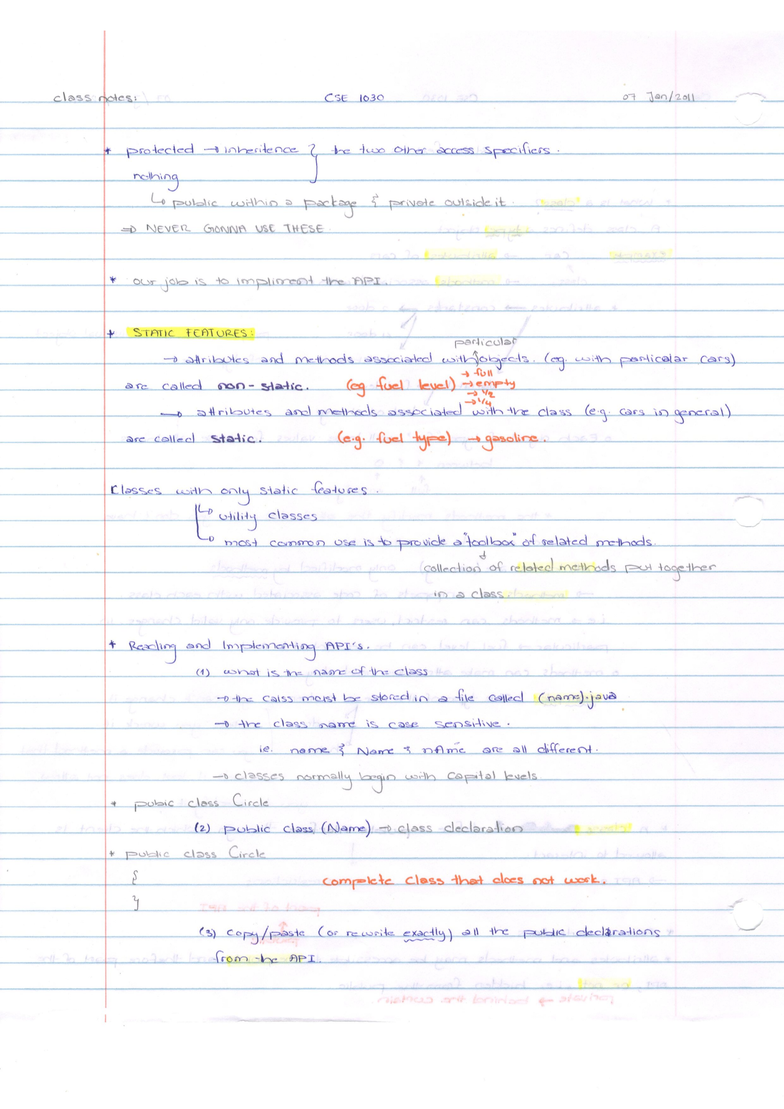 class notes: CSE 1030 07 Jan/2011
* protected → inheritence } the two other access specifiers.
nothing
↳ public within a package & private outside it
⇒ NEVER GONNA USE THESE
* our job is to impliment the API.
* STATIC FEATURES:
particular
→ attributes and methods associated with objects. (eg. with particular cars)
→ full
are called non-static. (eg fuel level) → empty
→ 1/2
→ 1/4
→ attributes and methods associated with the class (e.g. cars in general)
are called static. (e.g. fuel type) → gasoline.
Classes with only static features.
↳ utility classes
↳ most common use is to provide a "toolbox" of related methods.
(collection of related methods put together
in a class.
* Reading and Implementing API's.
(1) what is the name of the class
→ the calss moist be stored in a file called (name).java
→ the class name is case sensitive.
ie. name & Name & nAme are all different.
→ classes normally begin with capital levels
* public class Circle
(2) public class (Name) → class declaration
* public class Circle
{ complete class that does not work.
}
(3) copy/paste (or rewrite exactly) all the public declarations
from the API.